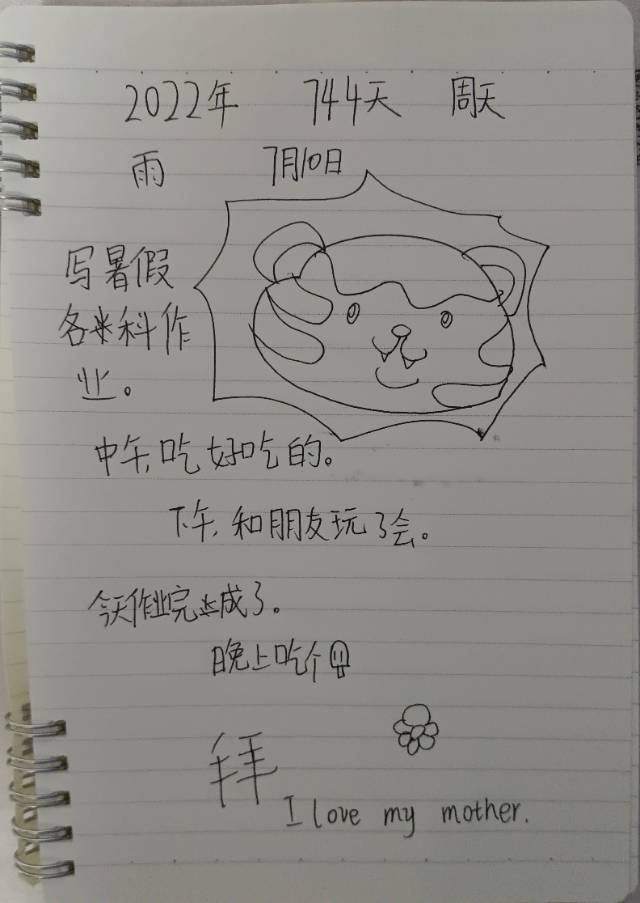 2022年 744天 周天
雨 7月10日
写暑假
各科作
业。
中午,吃好吃的。
下午,和朋友玩了会。
今天作业完成了。
晚上吃个
拜
I love my mother.